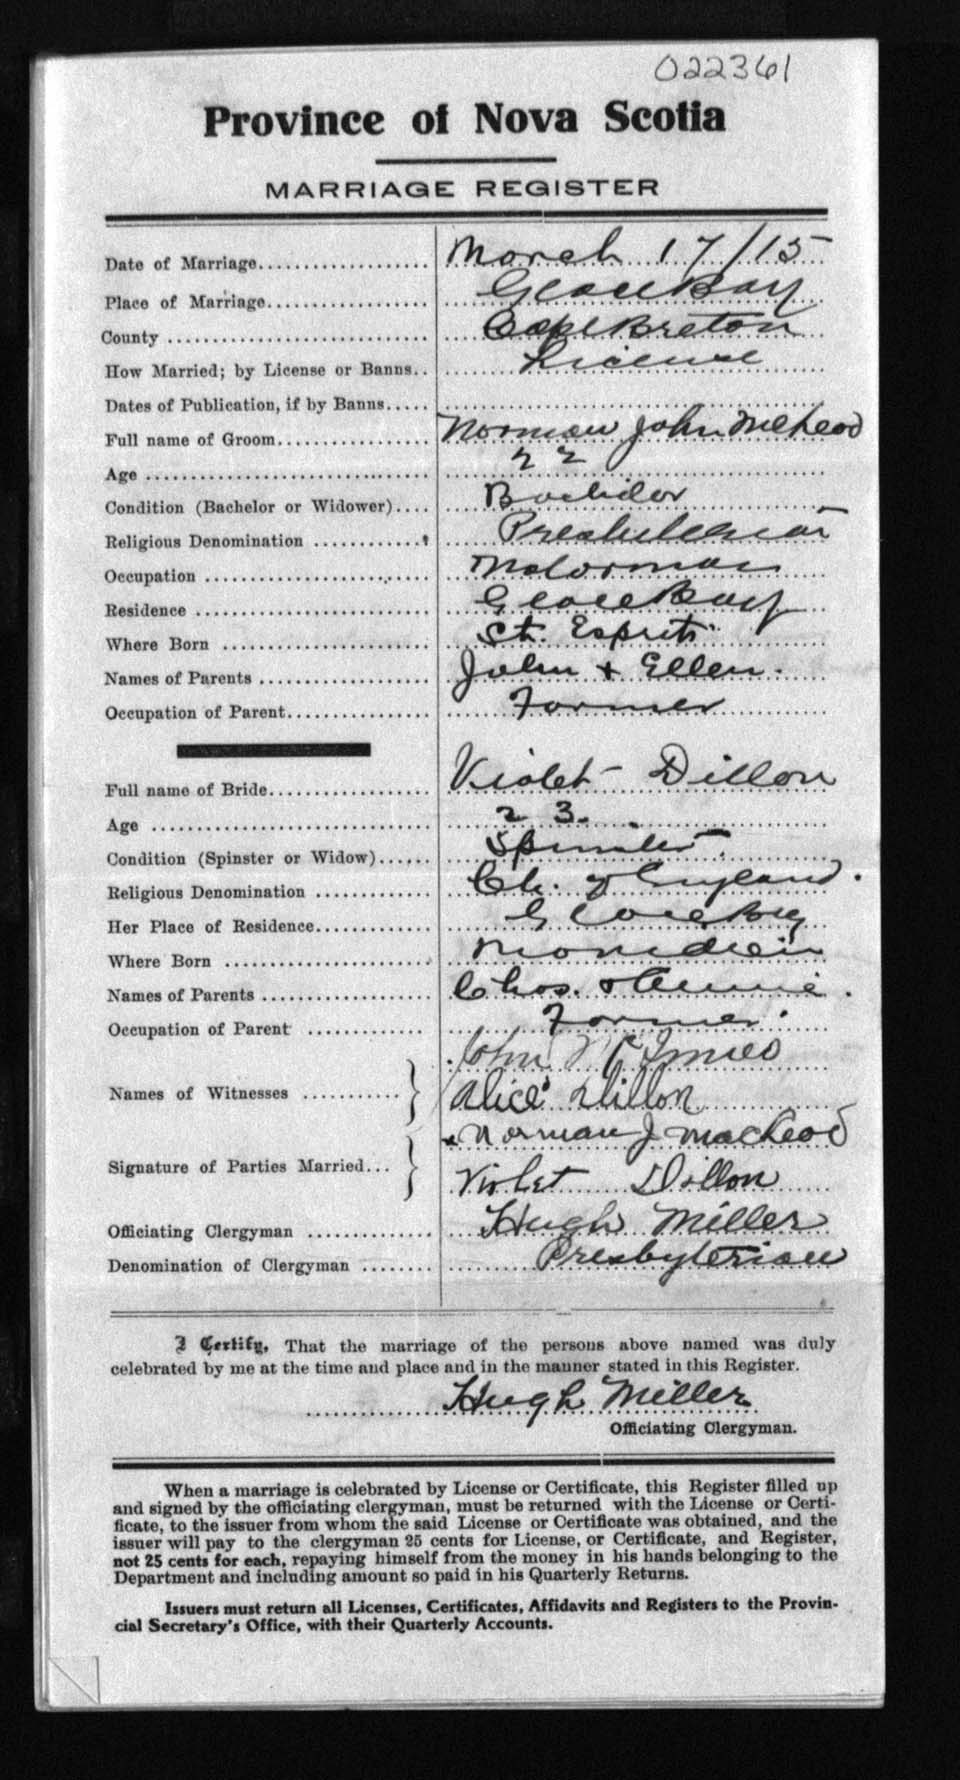 022361
Province of Nova Scotia
MARRIAGE REGISTER
Date of Marriage................... March 17/15
Place of Marriage.................. Glace Bay
County ............................. Cape Breton
How Married; by License or Banns.. License
Dates of Publication, if by Banns.....
Full name of Groom................ Norman John McLeod
Age ............................... 22
Condition (Bachelor or Widower).... Bachelor
Religious Denomination ............ Presbyterian
Occupation ......................... Motorman
Residence .......................... Glace Bay
Where Born ....................... St. Esprit
Names of Parents ................. John + Ellen.
Occupation of Parent................ Farmer
Full name of Bride................. Violet Dillon
Age ............................... 23.
Condition (Spinster or Widow)...... Spinster.
Religious Denomination ............ Ch. of England.
Her Place of Residence............. Glace Bay
Where Born .......................
Names of Parents ................. Chas. & Annie.
Occupation of Parent ............ Farmer.
John McInnes
Names of Witnesses ...........
Alice Dillon
Norman J MacLeod
Signature of Parties Married...
Violet Dillon
Officiating Clergyman .............. Hugh Miller
Denomination of Clergyman ........ Presbyterian
I Certify, That the marriage of the persons above named was duly
celebrated by me at the time and place and in the manner stated in this Register.
Hugh Miller
Officiating Clergyman.
When a marriage is celebrated by License or Certificate, this Register filled up
and signed by the officiating clergyman, must be returned with the License or Certi-
ficate, to the issuer from whom the said License or Certificate was obtained, and the
issuer will pay to the clergyman 25 cents for License, or Certificate, and Register,
not 25 cents for each, repaying himself from the money in his hands belonging to the
Department and including amount so paid in his Quarterly Returns.
Issuers must return all Licenses, Certificates, Affidavits and Registers to the Provin-
cial Secretary's Office, with their Quarterly Accounts.